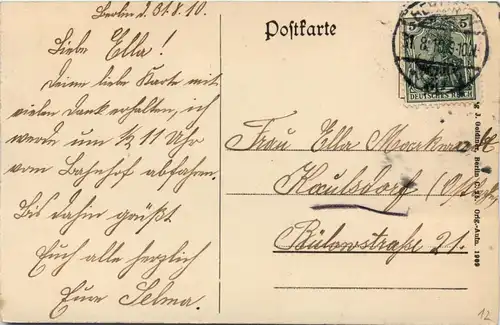 Berlin d. 31.8.10.
Liebe Ella!
Deine liebe Karte mit
vielen Dank erhalten, ich
werde um ½ 11 Uhr
vom Bahnhof abfahren.
Bis dahin grüßt
Euch alle herzlich
Eure Selma.
Postkarte
5
5
DEUTSCHES REICH
Frau Ella
Kaulsdorf
Bülowstraße 21.
Berlin Orig.-Aufn. 1909
12